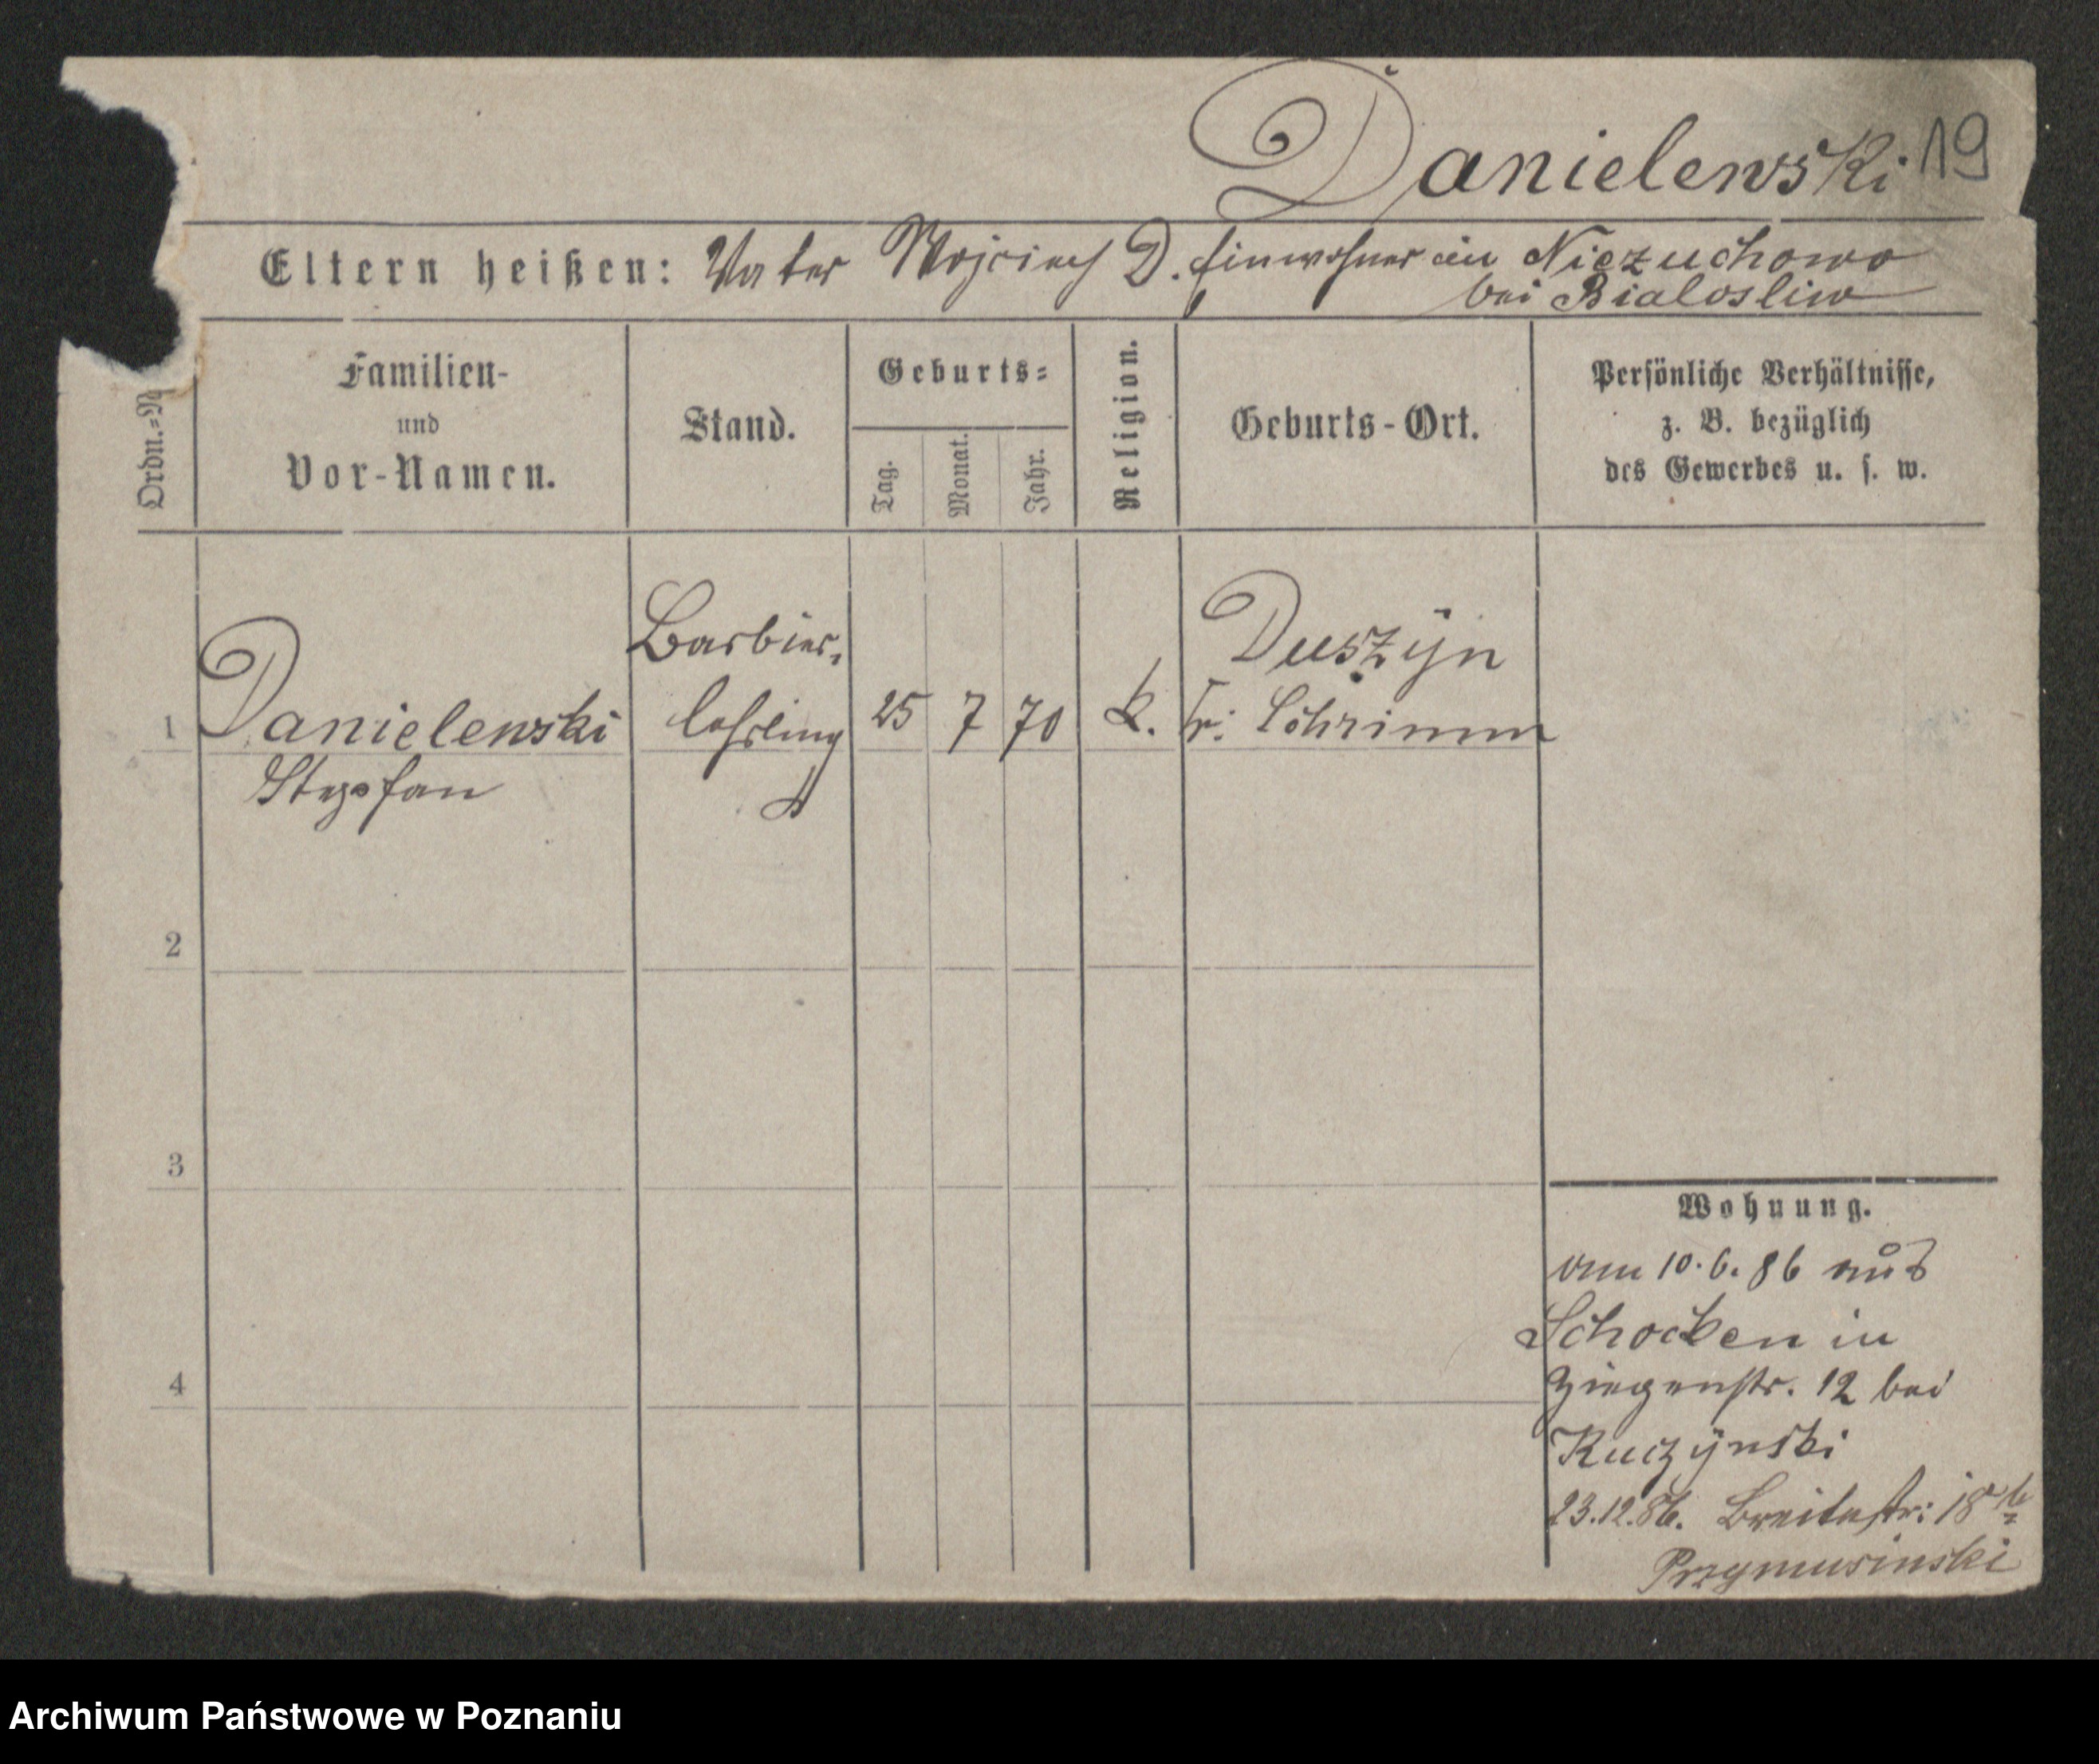 Danielewski 19
Eltern heißen: Vater Wojciech D. Einwohner in Niezuchowo
bei Bialosliw
Ordn.=N
Familien-
und
Vor-Namen.
Stand.
Geburts=
Tag.
Monat.
Jahr.
Religion.
Geburts-Ort.
Persönliche Verhältnisse,
z. B. bezüglich
des Gewerbes u. s. w.
Barbier,
Duszyn
1 Danielewski lehrling 25 7 70 k. Kr: Schrimm
Stephan
2
3
4
Wohnung.
am 10.6.86 aus
Schocken in
Ziegenstr. 12 bei
Kuczÿnski
23.12.86. Breitestr: 18
Przymusinski
Archiwum Państwowe w Poznaniu